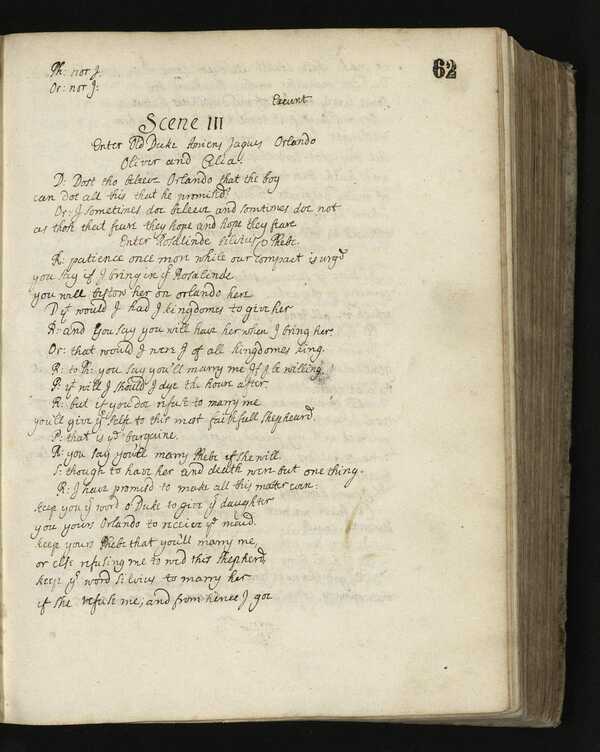 62
Ph: nor J.
Or: nor J:
Exeunt
Scene III
Enter Old Duke Amiens Jaques Orlando
Oliver and Celia.
D: Dost tho beleeve Orlando that the boy
can doe all this that he promisd?
Or: J sometimes doe beleeve and somtimes doe not
as those that feare they hope and hope they feare
Enter Rosalinde Silvius & Phebe.
R: patience once more while our compact is urgd
you say if J bring in yr Rosalinde
you will bestow her on orlando here
D yt would J had J kingdomes to give her
R: and you say you will have her when J bring her.
Or: that would J were J of all kingdomes king.
R: to Ph: you say you'll marry me if J be willing.
P: yt will J should J dye the houre after.
R: but if you doe refuse to marry me
you'll give yr selfe to this most faithfull shepheard.
P: that is ye bargaine.
R: you say you'll marry Phebe if she will
S: though to have her and death were but one thing.
R: J have promisd to make all this matter even:
keep you yr word o Duke to give yr daughter
you yours Orlando to receive ye maid.
keep yours Phebe that you'll marry me,
or else refusing me to wed this shepherd,
keep yr word Silvius to marry her
if she refuse me; and from hence J goe